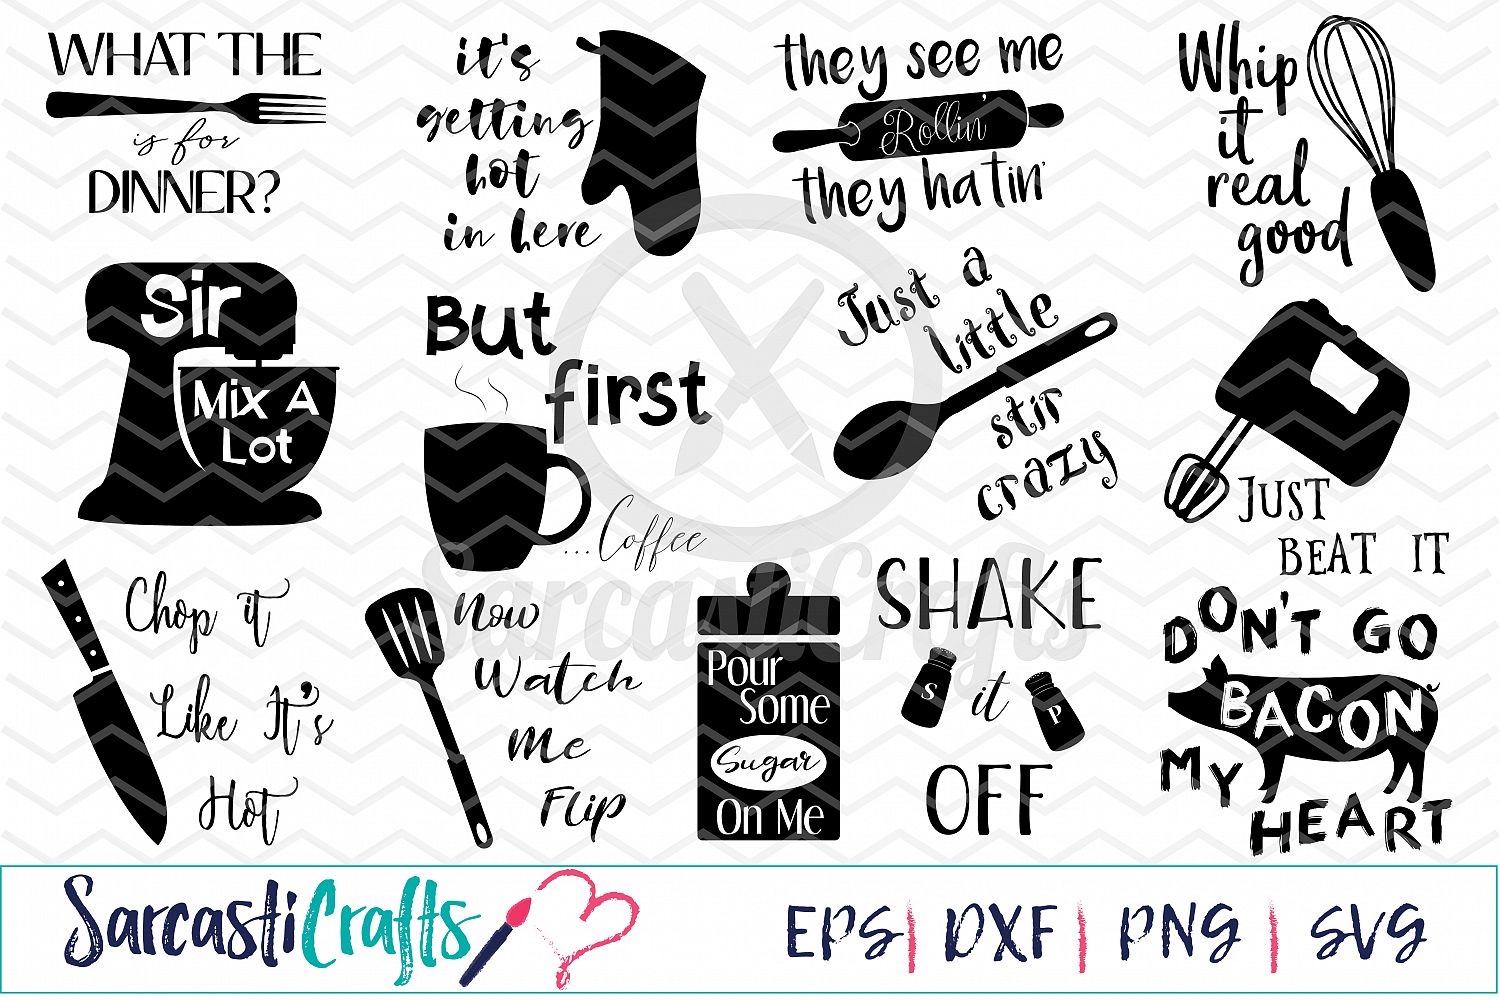 WHAT THE
is for
DINNER?
it's
getting
hot
in here
they see me
Rollin'
they hatin'
Whip
it
real
good
Sir
Mix A
Lot
But
first
...Coffee
Just a
little
stir
crazy
JUST
BEAT IT
Chop it
Like It's
Hot
Now
Watch
Me
Flip
Pour
Some
Sugar
On Me
SHAKE
S it P
OFF
DON'T GO
BACON
MY
HEART
SarcastiCrafts
SarcastiCrafts
EPS | DXF | PNG | SVG